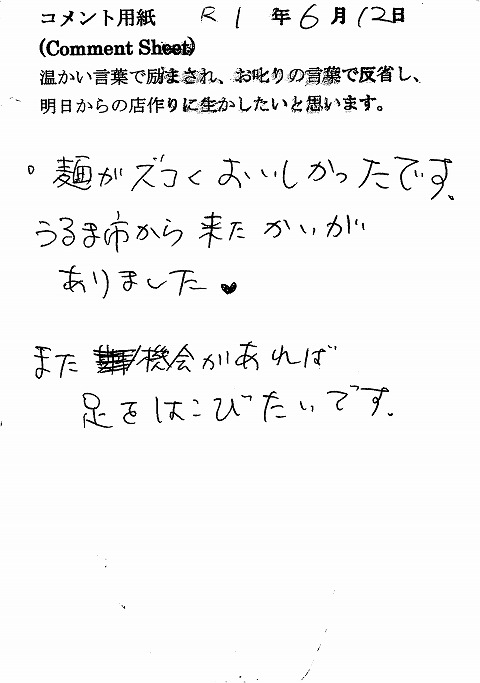 コメント用紙 R 1 年 6 月 12日
(Comment Sheet)
温かい言葉で励まされ、お叱りの言葉で反省し、
明日からの店作りに生かしたいと思います。
。麺がズコくおいしかったです。
うるま市から来たかいが
ありました♥
また機会があれば
足をはこびたいです。